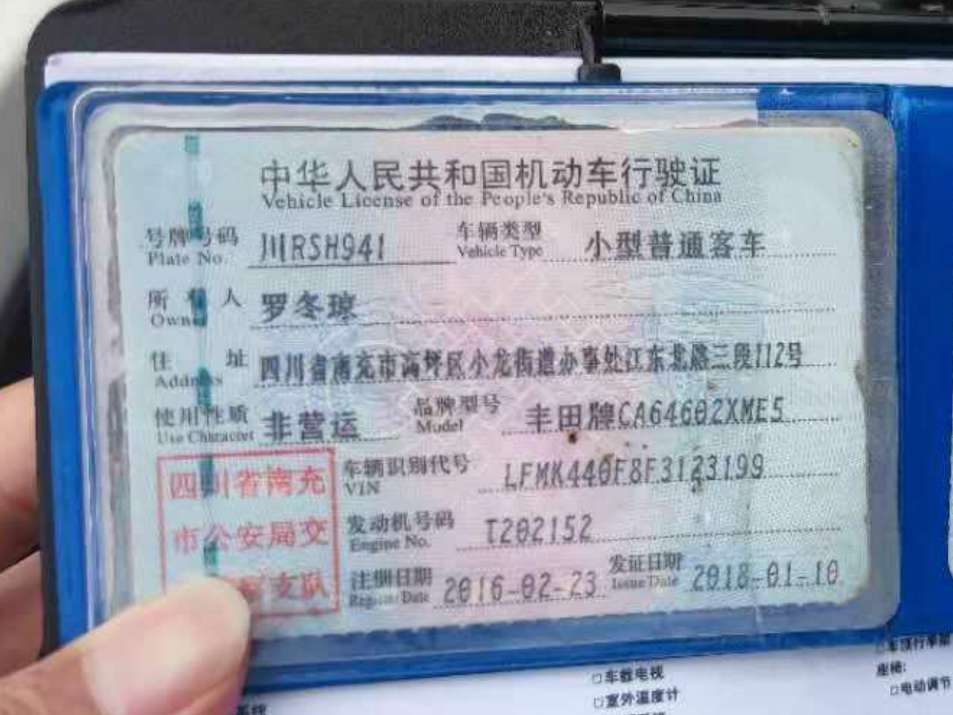 中华人民共和国机动车行驶证
Vehicle License of the People's Republic of China
号牌号码 川RSH941 车辆类型 小型普通客车
Plate No. Vehicle Type
所有人 罗冬琼
Owner
住址 四川省南充市高坪区小龙街道办事处江东北路三段112号
Address
使用性质 非营运 品牌型号 丰田牌CA64602XME5
Use Character Model
四川省南充 车辆识别代号 LFMK440F8F3123199
VIN
市公安局交 发动机号码 T202152
Engine No.
支队 注册日期 2016-02-23 发证日期 2018-01-10
Register Date Issue Date
系统
□车载电视
□室外温度计
□车顶行李架
座椅:
□电动调节